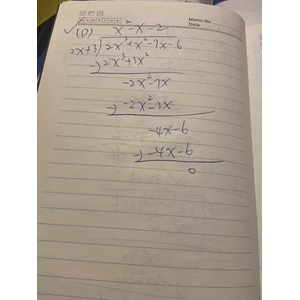 Memo No.
Date
✓(D) x²-x-2
2x+3)2x³+x²-7x-6
-) 2x³+3x²
-2x²-7x
-) -2x²-3x
-4x-6
-) -4x-6
0